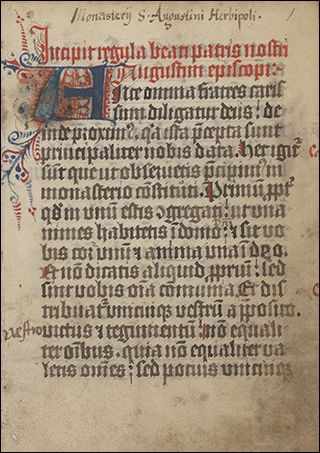 Monasterij S. Augustini Herbipoli.
Incipit regula beati patris nostri
Augustini episcopi:
Ante omnia fratres cariss
simi diligatur deus: de
inde proximꝰ. qꝛ ista p̄cepta sunt
principaliter nobis data. Hec igit᷑
sūt que ut obseruetis p̄cipimꝰ in
monasterio cōstituti. Primū ꝓpt᷑
qd̄ in unū estis ꝯgregati: ut una
nimes habitetis ī domo: ⁊ sit vo
bis cor unū ⁊ anima una ī deo.
Et nō dicatis aliquid ꝓpriū: sed
sint vobis oīa cōmunia. Et dis
tribuat᷑ vnicuiqꝫ vestrū a p̄posito
vestro
victus ⁊ tegumentū: nō equali
ter oībus. quia nō equaliter va
letis om̄es: sed potius vnicuiqꝫ